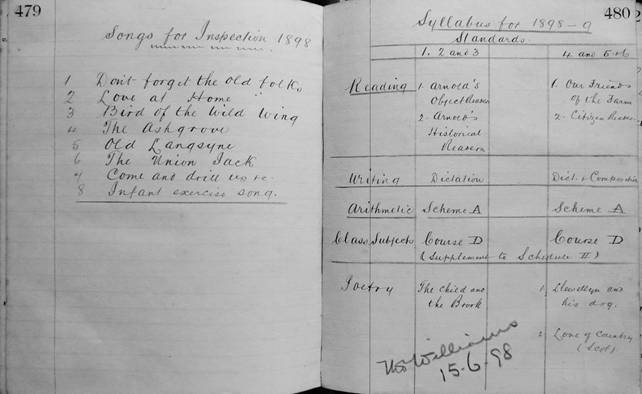 479
Songs for Inspection 1898
1 Don't forget the old folks
2 Love at Home
3 Bird of the Wild Wing
4 The Ashgrove
5 Old Langsyne
6 The Union Jack
7 Come and drill
8 Infant exercise song.
480
Syllabus for 1898-9
Standards
1. 2 and 3
4 and 5+6
Reading
1. Arnold's
Object Readers
2- Arnold's
Historical
Readers
1. Our Friends
of the Farm
2- Citizen Reader
Writing Dictation Dict. + Composition
Arithmetic Scheme A Scheme A
Class Subjects Course D Course D
(Supplement to Schedule II)
Poetry
The child and
the Brook
1. Llewellyn and
his dog.
2 Love of Country
(Scott)
Thos Williams
15-6-98